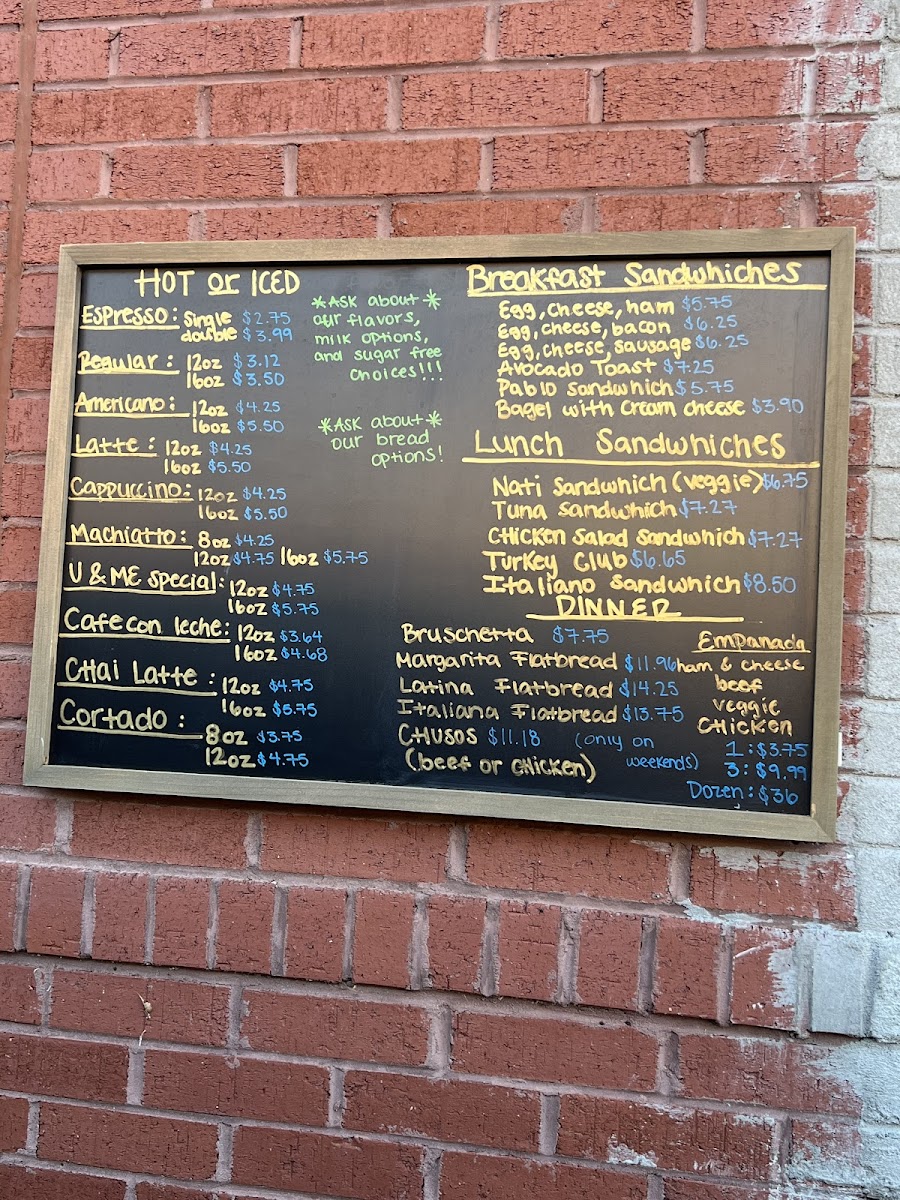 HOT or ICED
Espresso: single $2.75
double $3.99
Regular: 12oz $3.12
16oz $3.50
Americano: 12oz $4.25
16oz $5.50
Latte: 12oz $4.25
16oz $5.50
Cappuccino: 12oz $4.25
16oz $5.50
Machiatto: 8oz $4.25
12oz $4.75 16oz $5.75
U & ME special: 12oz $4.75
16oz $5.75
Cafe con leche: 12oz $3.64
16oz $4.68
CHai Latte: 12oz $4.75
16oz $5.75
Cortado: 8oz $3.75
12oz $4.75
*Ask about*
our flavors,
milk options,
and sugar free
choices!!!
*Ask about*
our bread
options!
Breakfast Sandwhiches
Egg, cheese, ham $5.75
Egg, cheese, bacon $6.25
Egg, cheese, sausage $6.25
Avocado Toast $7.25
Pablo sandwhich $5.75
Bagel with cream cheese $3.90
Lunch Sandwhiches
Nati Sandwhich (veggie) $6.75
Tuna sandwhich $7.27
CHicken salad sandwhich $7.27
Turkey Club $6.65
Italiano sandwhich $8.50
DINNER
Bruschetta $7.75
Margarita Flatbread $11.96
Latina Flatbread $14.25
Italiana Flatbread $13.75
CHUSOS $11.18 (only on
weekends)
(beef or CHicken)
Empanada
ham & cheese
beef
veggie
CHicken
1: $3.75
3: $9.99
Dozen: $36